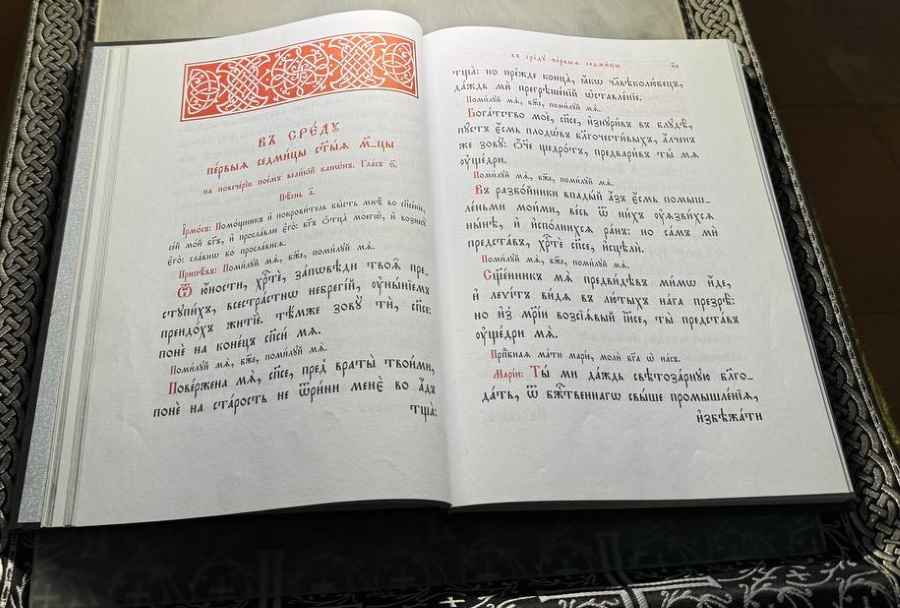 ВЪ СРЕ́ДУ
пе́рвыѧ седми́цы ст҃ы́ѧ м҃_цы
на повече́рїи пое́мъ вели́кїй кано́нъ. Гла́съ ѕ҃.
Пѣ́снь а҃.
І҆рмо́съ: Помо́щникъ и҆ покрови́тель бы́сть мнѣ̀ во сп҃се́нїе,
се́й мо́й бг҃ъ, и҆ просла́влю є҆го̀: бг҃ъ ѻ҆тца̀ моегѡ̀, и҆ вознесꙋ̀
є҆го̀: сла́внѡ бо просла́висѧ.
Припѣ́въ: Поми́лꙋй мѧ̀, бж҃е, поми́лꙋй мѧ̀.
Ѿ ю҆́ности, хрⷭ҇тѐ, за́пѡвѣди твоѧ̑ пре_
стꙋпи́хъ, всестра́стнѡ небрегі́й, ᲂу҆ны́нїемъ
преидо́хъ житїѐ. тѣ́мже зовꙋ́ ти, сп҃се:
поне́ на коне́цъ сп҃си́ мѧ.
Поми́лꙋй мѧ̀, бж҃е, поми́лꙋй мѧ̀.
Пове́ржена мѧ̀, сп҃се, пред̾ враты̀ твои́ми,
поне́ на ста́рость не ѿри́ни менѐ во а҆́дъ
тща̀:
въ сре́дꙋ пе́рвыѧ седми́цы
тща̀: но пре́жде конца̀, ꙗ҆́кѡ чл҃вѣколю́бецъ,
да́ждь мѝ прегрѣше́нїй ѡ҆ставле́нїе.
Поми́лꙋй мѧ̀, бж҃е, поми́лꙋй мѧ̀.
Бога́тство моѐ, сп҃се, и҆знꙋри́въ въ блꙋ́дѣ,
пꙋ́стъ є҆́смь плодѡ́въ благочести́выхъ, а҆́лченъ
же зовꙋ̀: ѻ҆́ч҃е щедро́тъ, предвари́въ ты̀ мѧ
ᲂу҆ще́дри.
Поми́лꙋй мѧ̀, бж҃е, поми́лꙋй мѧ̀.
Въ разбо́йники впады́й а҆́зъ є҆́смь помыш_
ле́ньми мои́ми, ве́сь ѿ ни́хъ ᲂу҆ѧзви́хсѧ
ны́нѣ, и҆ и҆спо́лнихсѧ ра́нъ: но са́мъ мѝ
предста́въ, хрⷭ҇тѐ сп҃се, и҆сцѣлѝ.
Поми́лꙋй мѧ̀, бж҃е, поми́лꙋй мѧ̀.
Сщ҃е́нникъ мѧ̀ предви́дѣвъ ми́мѡ и҆́де,
и҆ леѵі́тъ ви́дѧ въ лю́тыхъ на́га презрѣ̀:
но и҆з̾ мр҃і́и возсїѧ́вый і҆и҃се, ты̀ предста́въ
ᲂу҆ще́дри мѧ̀.
Прпⷣбнаѧ ма́ти марі́е, молѝ бг҃а ѡ҆ на́съ.
Марі́и: Ты́ ми да́ждь свѣтоза́рнꙋю благо_
да́ть, ѿ бж҃твеннагѡ свы́ше промышле́нїѧ,
и҆збѣжа́ти